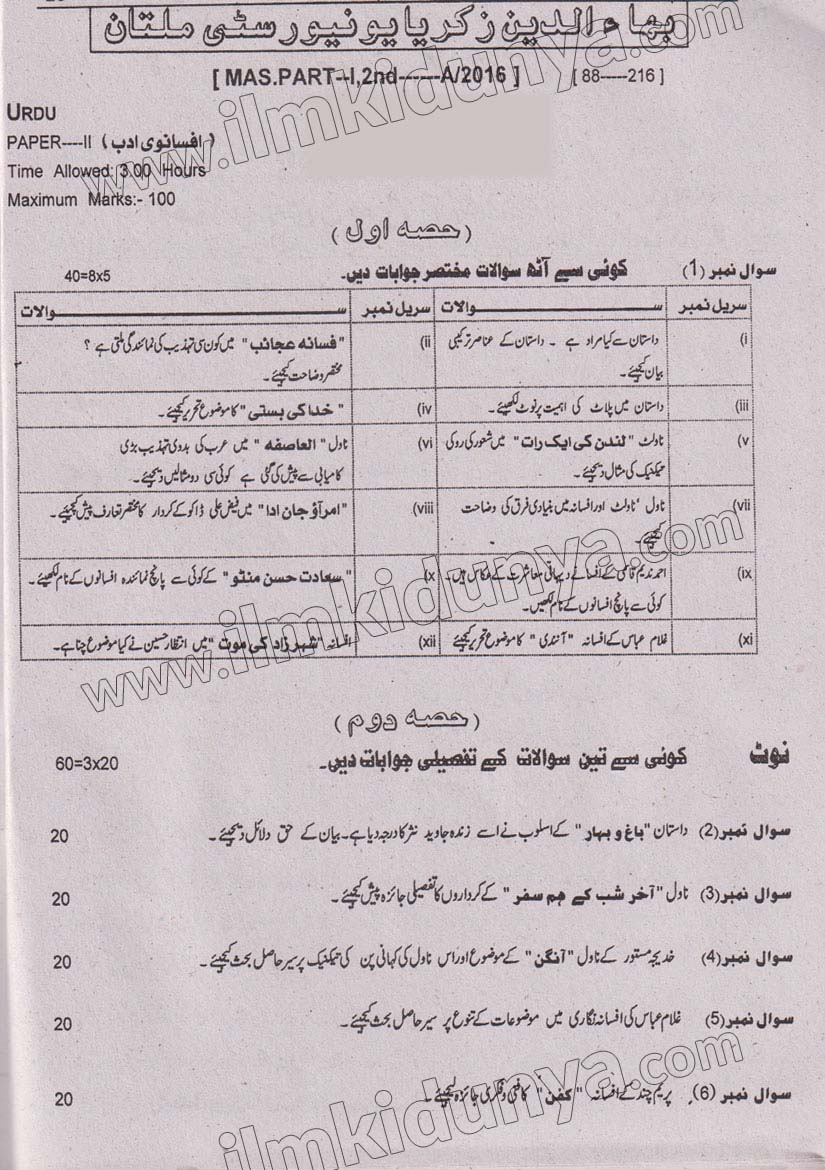 بہاء الدین زکریا یونیورسٹی ملتان
[ MAS.PART--I,2nd------A/2016 ] [ 88-----216 ]
URDU
PAPER----II ( افسانوی ادب )
Time Allowed: 3.00 Hours
Maximum Marks:- 100
( حصہ اول )
سوال نمبر (1) کوئی سے آٹھ سوالات مختصر جوابات دیں۔ 40=8x5
سریل نمبر ســـــــوالات سریل نمبر ســـــــوالات
(i داستان سے کیا مراد ہے ۔ داستان کے عناصر ترکیبی
بیان کیجئیے۔
(ii "فسانہ عجائب" میں کون سی تہذیب کی نمائندگی ملتی ہے ؟
مختصر وضاحت کیجئیے۔
(iii داستان میں پلاٹ کی اہمیت پر نوٹ لکھیئے۔
(iv "خدا کی بستی" کا موضوع تحریر کیجئیے۔
(v ناولٹ "لندن کی ایک رات" میں شعور کی رو کی
تیکنیک کی مثال دیجئیے۔
(vi ناول "العاصفہ" میں عرب کی بدوی تہذیب بڑی
کامیابی سے پیش کی گئی ہے کوئی سی دو مثالیں دیجئیے۔
(vii ناول ' ناولٹ اور افسانہ میں بنیادی فرق کی وضاحت
کیجئیے۔
(viii "امراؤ جان ادا" میں فیض علی ڈاکو کے کردار کا مختصر تعارف پیش کیجئیے۔
(ix احمد ندیم قاسمی کے افسانے دیہاتی معاشرت کے عکاس ہیں۔
کوئی سے پانچ افسانوں کے نام لکھیں۔
(x "سعادت حسن منٹو" کے کوئی سے پانچ نمائندہ افسانوں کے نام لکھیئے۔
(xi غلام عباس کے افسانہ "آنندی" کا موضوع تحریر کیجئیے
(xii افسانہ "شہرزاد کی موت" میں انتظار حسین نے کیا موضوع چنا ہے۔
( حصہ دوم )
نوٹ کوئی سے تین سوالات کے تفصیلی جوابات دیں۔ 60=3x20
سوال نمبر (2) داستان "باغ و بہار" کے اسلوب نے اسے زندہ جاوید نثر کا درجہ دیا ہے۔ بیان کے حق دلائل دیجئیے۔ 20
سوال نمبر (3) ناول "آخر شب کے ہم سفر" کے کرداروں کا تفصیلی جائزہ پیش کیجئیے۔ 20
سوال نمبر (4) خدیجہ مستور کے ناول "آنگن" کے موضوع اور اس ناول کی کہانی پن کی تیکنیک پر سیر حاصل بحث کیجئیے۔ 20
سوال نمبر (5) غلام عباس کی افسانہ نگاری میں موضوعات کے تنوع پر سیر حاصل بحث کیجئیے۔ 20
سوال نمبر (6) پریم چند کے افسانہ "کفن" کا فنی و فکری جائزہ لیجئیے۔ 20
www.ilmkidunya.com
www.ilmkidunya.com
ilmkidunya.com